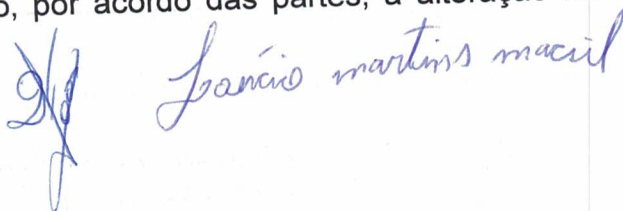 o, por acordo das partes, a alteração
martins maciel